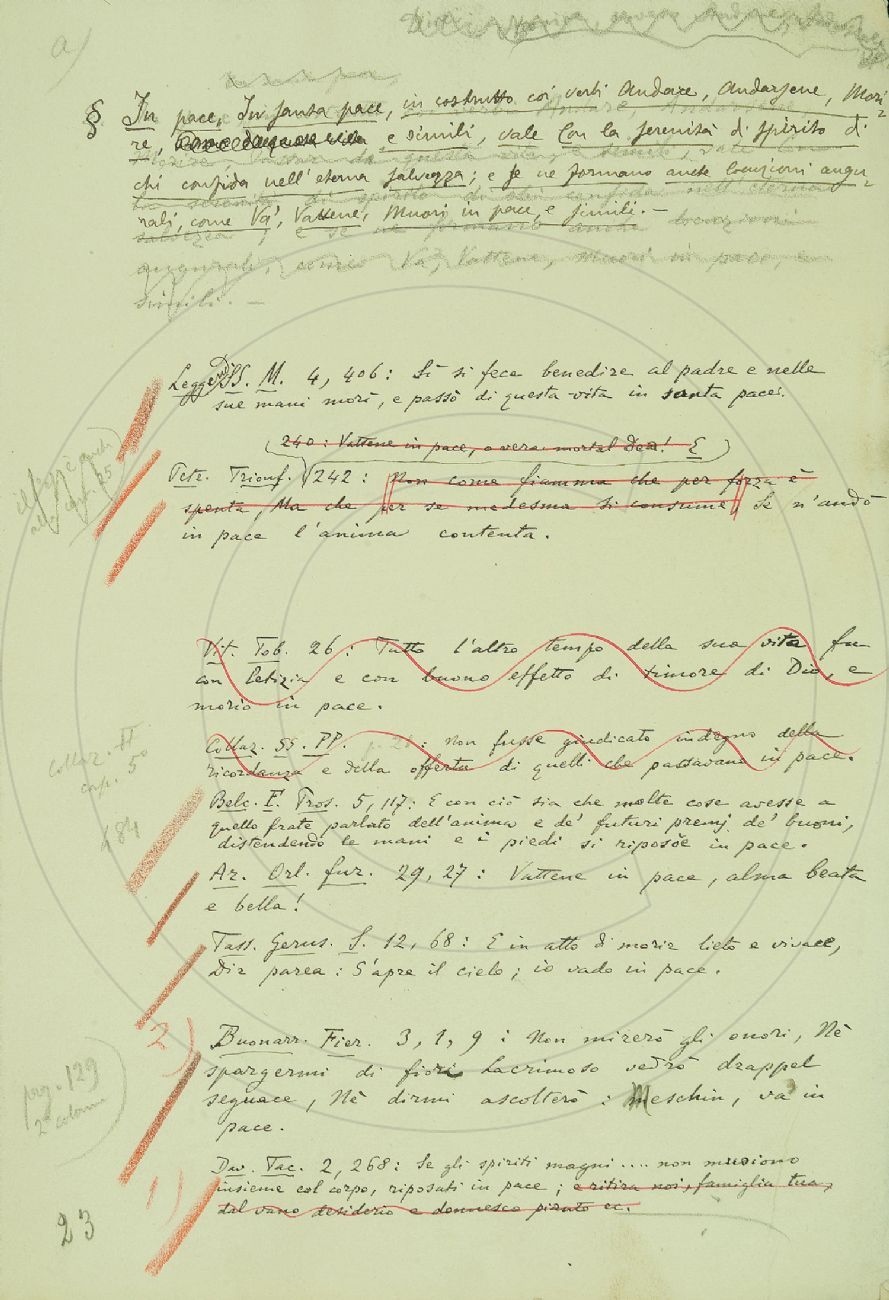 a)
§ In pace, In santa pace, in costrutto coi verbi Andare, Andarsene, Mori-
re, e simili, vale Con la serenità di spirito di
chi confida nell'eterna salvezza; e se ne formano anche locuzioni augu-
rali, come Va', Vattene, Muori in pace, e simili. —
augurali, come Va, Vattene, Muori in pace, e
simili. —
Legg. SS. M. 4, 406: Sì si fece benedire al padre e nelle
sue mani morì, e passò di questa vita in santa pace.
240: Vattene in pace, o vera mortal Dea! E
Petr. Trionf. 242: Non come fiamma che per forza è
spenta, Ma che per se medesma si consume, Se n'andò
in pace l'anima contenta.
Vit. Tob. 26: Tutto l'altro tempo della sua vita fu
con letizia e con buono effetto di timore di Dio, e
morio in pace.
Collaz. SS. PP. p. : Non fusse giudicato indegno della
ricordanza e della offerta di quelli che passavano in pace.
Collaz. II
cap. 5°
Belc. F. Pros. 5, 117: E con ciò sia che molte cose avesse a
quello frate parlato dell'anima e de' futuri premj de' buoni,
distendendo le mani e i piedi si riposòe in pace.
184
Ar. Orl. fur. 29, 27: Vattene in pace, alma beata
e bella!
Tass. Gerus. S. 12, 68: E in atto di morir lieto e vivace,
Dir parea: S'apre il cielo; io vado in pace.
2)
Buonarr. Fier. 3, 1, 9: Non mirerò gli onori, Nè
spargermi di fiori Lacrimoso vedrò drappel
seguace, Nè dirmi ascolterò: Meschin, va in
pace.
pag. 129
2ª colonna
Dav. Tac. 2, 268: Se gli spiriti magni .... non muoiono
insieme col corpo, riposati in pace; e ritira noi, famiglia tua,
dal vano desiderio e donnesco pianto ec.
1)
23